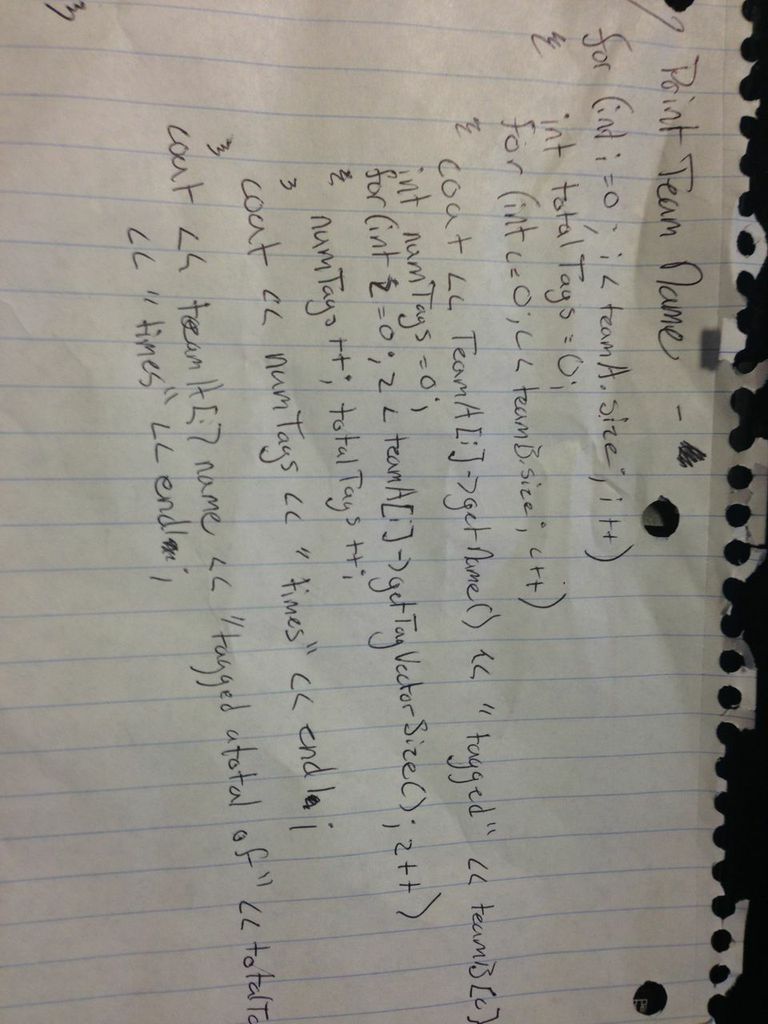 // Print Team Name -
for (int i=0; i < teamA.size; i++)
{ int totalTags = 0;
for (int c=0; c < teamB.size; c++)
{ cout << TeamA[i]->getName() << "tagged" << teamB[c]
int numTags = 0;
for (int z=0; z < teamA[i]->getTagVectorSize(); z++)
{ numTags++; totalTags++;
}
cout << numTags << "times" << endl;
}
cout << teamA[i] name << "tagged a total of" << totalTa
<< "times" << endl;
}